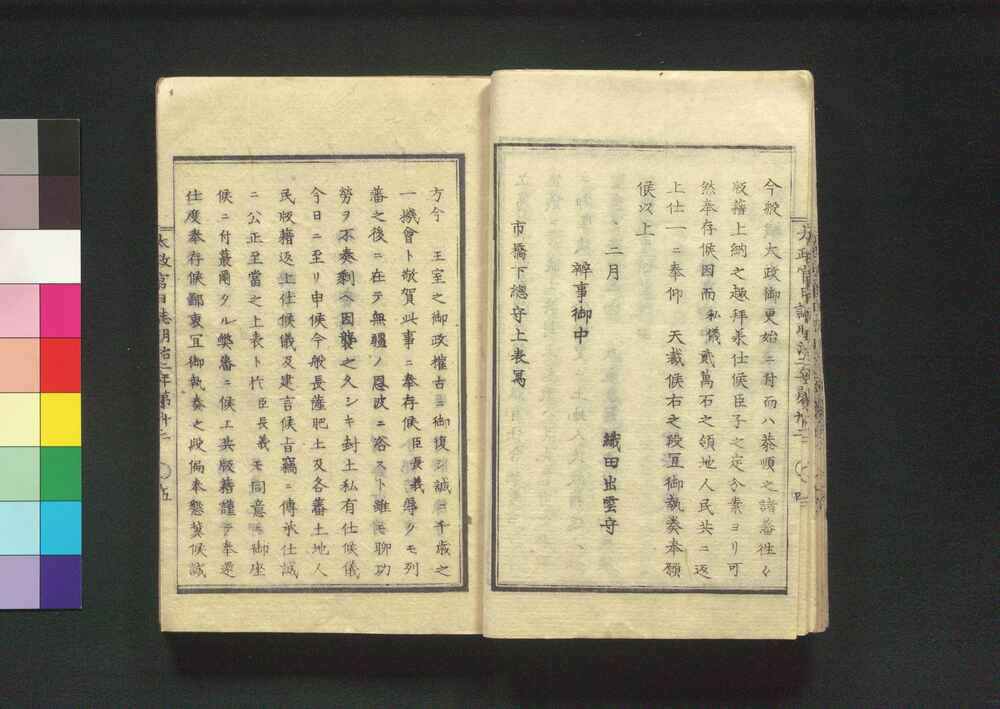 今般 大政御更始ニ付而ハ恭順之諸藩往々
版籍上納之趣拜承仕候臣子之定分素ヨリ可
然奉存候因而私儀貳萬石之領地人民共ニ返
上仕一ニ奉仰 天裁候右之段宜御執奏奉願
候以上
二月 織田出雲守
辨事御中
市橋下總守上表寫
方今 王室之御政權古ニ御復シ誠ニ千歳之
一機會ト敬賀此事ニ奉存候臣長義辱クモ列
藩之後ニ在テ無疆ノ恩波ニ浴スト雖モ聊功
勞ヲ不奏剩ヘ因襲之久シキ封土私有仕候儀
今日ニ至リ申候今般長薩肥土及各藩土地人
民版籍返上仕候儀及建言候旨竊ニ傳承仕誠
ニ公正至當之上表ト臣長義モ同意 御座
候ニ付蕞爾タル弊藩ニ候エ共版籍謹テ奉還
仕度奉存候鄙衷宜御執奏之段偏奉懇冀候誠
太政官日誌明治二年第廿二 ○五